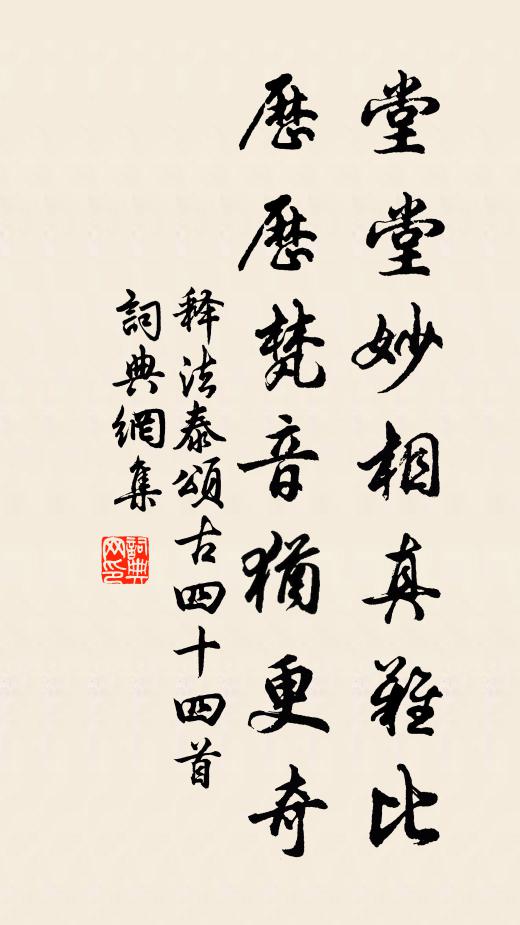 堂堂妙相真難比
歷歷梵音猶更奇
释法泰頌古四十四首
詞典網集
詞典网印